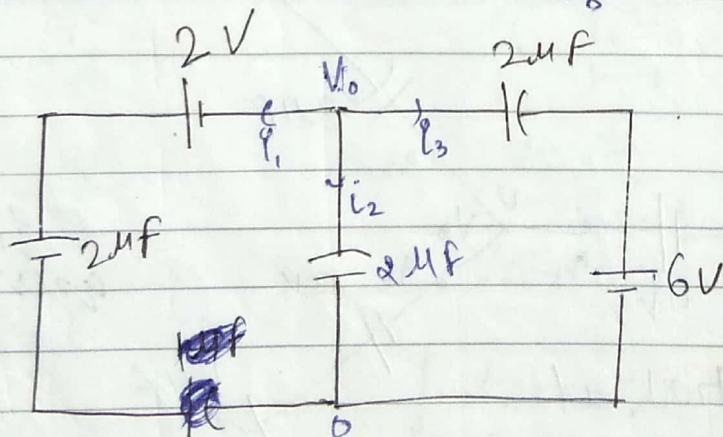 2V
2μF
V₀
i₁
i₃
i₂
2μF
2μF
6V
0